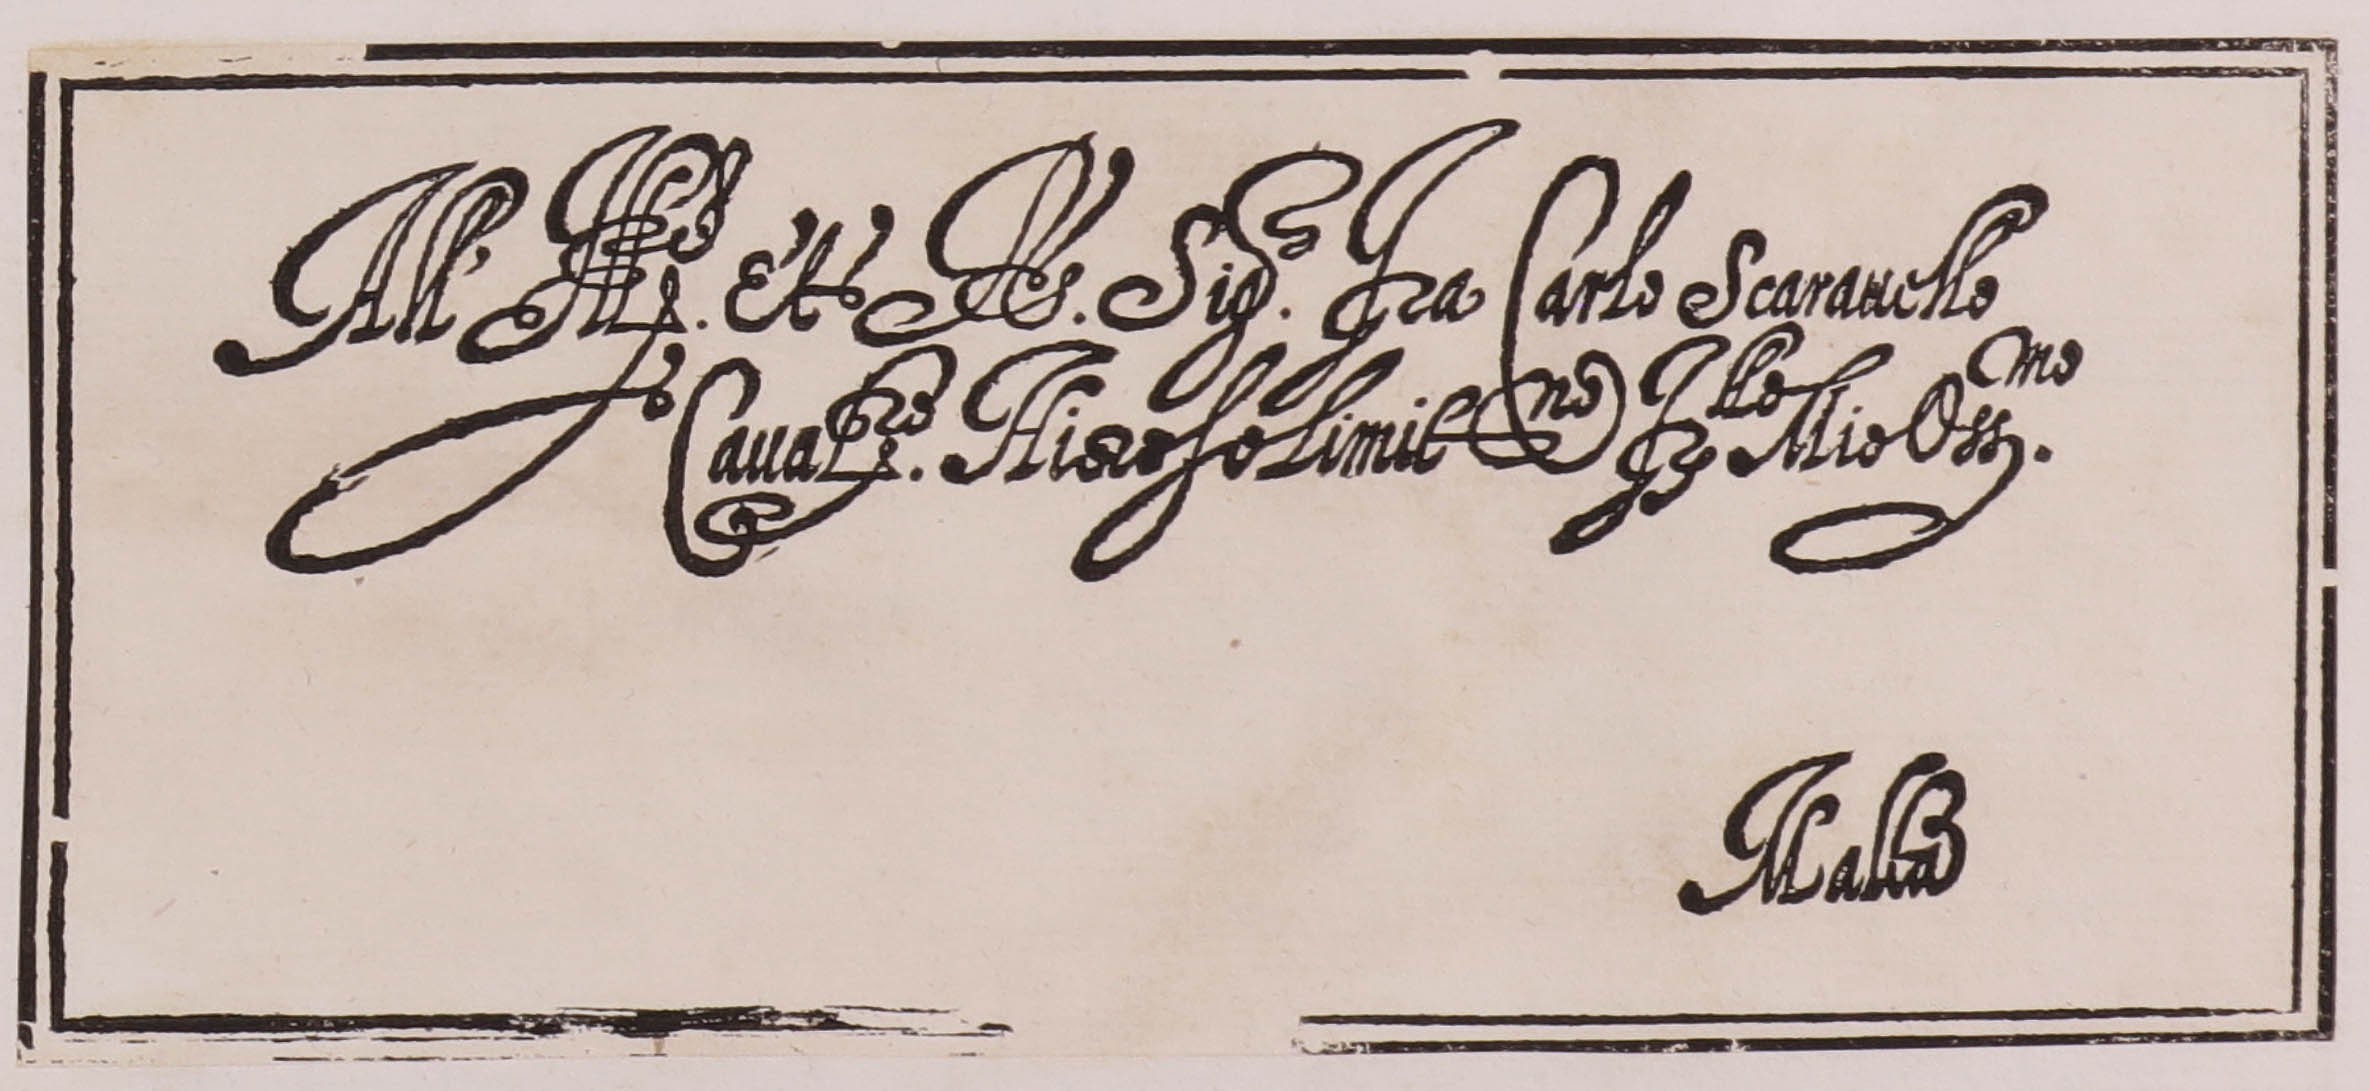 All' Ill.re et Ill. Sig.r Fra Carlo Scarauello
Caual.ro Hierosolimit.no Fr.llo Mio Oss.mo
Malta